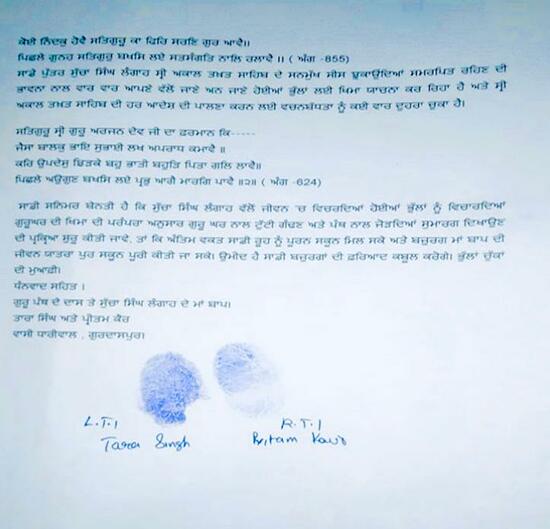 ਕੋਈ ਨਿੰਦਕੁ ਹੋਵੈ ਸਤਿਗੁਰੂ ਕਾ ਫਿਰਿ ਸਰਣਿ ਗੁਰ ਆਵੈ॥
ਪਿਛਲੇ ਗੁਨਹ ਸਤਿਗੁਰੁ ਬਖਸਿ ਲਏ ਸਤਸੰਗਤਿ ਨਾਲਿ ਰਲਾਵੈ ॥ ( ਅੰਗ -855)
ਸਾਡੇ ਪੁੱਤਰ ਸੁੱਚਾ ਸਿੰਘ ਲੰਗਾਹ ਸ੍ਰੀ ਅਕਾਲ ਤਖਤ ਸਾਹਿਬ ਦੇ ਸਨਮੁੱਖ ਸੀਸ ਝੁਕਾਉਂਦਿਆਂ ਸਮਰਪਿਤ ਰਹਿਣ ਦੀ
ਭਾਵਨਾ ਨਾਲ ਵਾਰ ਵਾਰ ਆਪਣੇ ਵੱਲੋਂ ਜਾਣੇ ਅਨ ਜਾਣੇ ਹੋਈਆਂ ਭੁੱਲਾਂ ਲਈ ਖਿਮਾ ਯਾਚਨਾ ਕਰ ਰਿਹਾ ਹੈ ਅਤੇ ਸ੍ਰੀ
ਅਕਾਲ ਤਖਤ ਸਾਹਿਬ ਦੀ ਹਰ ਆਦੇਸ਼ ਦੀ ਪਾਲਣਾ ਕਰਨ ਲਈ ਵਚਨਬੱਧਤਾ ਨੂੰ ਕਈ ਵਾਰ ਦੁਹਰਾ ਚੁਕਾ ਹੈ।
ਸਤਿਗੁਰੂ ਸ੍ਰੀ ਗੁਰੂ ਅਰਜਨ ਦੇਵ ਜੀ ਦਾ ਫ਼ਰਮਾਨ ਕਿ-----
ਜੈਸਾ ਬਾਲਕੁ ਭਾਇ ਸੁਭਾਈ ਲਖ ਅਪਰਾਧ ਕਮਾਵੈ ॥
ਕਰਿ ਉਪਦੇਸੁ ਝਿੜਕੇ ਬਹੁ ਭਾਤੀ ਬਹੁੜਿ ਪਿਤਾ ਗਲਿ ਲਾਵੈ॥
ਪਿਛਲੇ ਅਉਗੁਣ ਬਖਸਿ ਲਏ ਪ੍ਰਭੁ ਆਗੈ ਮਾਰਗਿ ਪਾਵੈ ॥੨॥ ( ਅੰਗ -624)
ਸਾਡੀ ਸਨਿਮਰ ਬੇਨਤੀ ਹੈ ਕਿ ਸੁੱਚਾ ਸਿੰਘ ਲੰਗਾਹ ਵੱਲੋਂ ਜੀਵਨ 'ਚ ਵਿਚਰਦਿਆਂ ਹੋਈਆਂ ਭੁੱਲਾਂ ਨੂੰ ਵਿਚਾਰਦਿਆਂ
ਗੁਰੂਘਰ ਦੀ ਖਿਮਾ ਦੀ ਪਰੰਪਰਾ ਅਨੁਸਾਰ ਗੁਰੂ ਘਰ ਨਾਲ ਟੁੱਟੀ ਗੰਢਣ ਅਤੇ ਪੰਥ ਨਾਲ ਜੋੜਦਿਆਂ ਸੁਮਾਰਗ ਦਿਖਾਉਣ
ਦੀ ਪ੍ਰਕ੍ਰਿਆ ਸ਼ੁਰੂ ਕੀਤੀ ਜਾਵੇ, ਤਾਂ ਕਿ ਅੰਤਿਮ ਵਕਤ ਸਾਡੀ ਰੂਹ ਨੂੰ ਪੂਰਨ ਸਕੂਨ ਮਿਲ ਸਕੇ ਅਤੇ ਬਜ਼ੁਰਗ ਮਾਂ ਬਾਪ ਦੀ
ਜੀਵਨ ਯਾਤਰਾ ਪੁਰ ਸਕੂਨ ਪੂਰੀ ਕੀਤੀ ਜਾ ਸਕੇ। ਉਮੀਦ ਹੈ ਸਾਡੀ ਬਜ਼ੁਰਗਾਂ ਦੀ ਫ਼ਰਿਆਦ ਕਬੂਲ ਕਰੋਗੇ। ਭੁੱਲਾਂ ਚੁੱਕਾਂ
ਦੀ ਮੁਆਫ਼ੀ।
ਧੰਨਵਾਦ ਸਹਿਤ ।
ਗੁਰੂ ਪੰਥ ਦੇ ਦਾਸ ਤੇ ਸੁੱਚਾ ਸਿੰਘ ਲੰਗਾਹ ਦੇ ਮਾਂ ਬਾਪ।
ਤਾਰਾ ਸਿੰਘ ਅਤੇ ਪ੍ਰੀਤਮ ਕੌਰ
ਵਾਸੀ ਧਾਰੀਵਾਲ , ਗੁਰਦਾਸਪੁਰ।
L.T.I R.T.I
Tara Singh Pritam Kaur